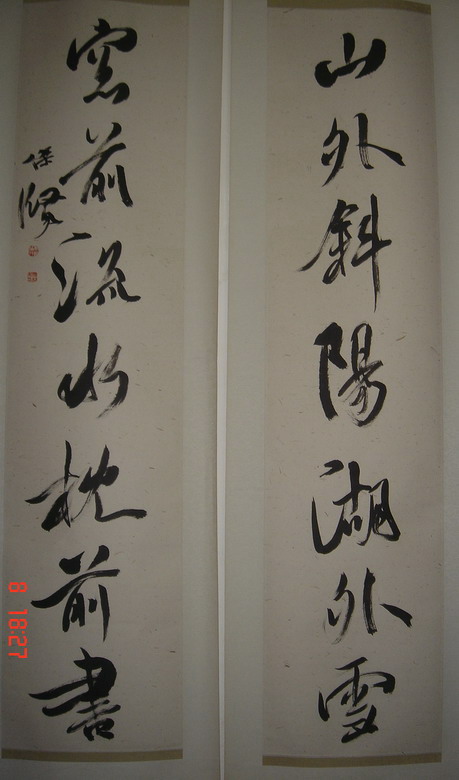 山外斜陽湖外雪
窓前流水枕前書
保賢
8 18:27